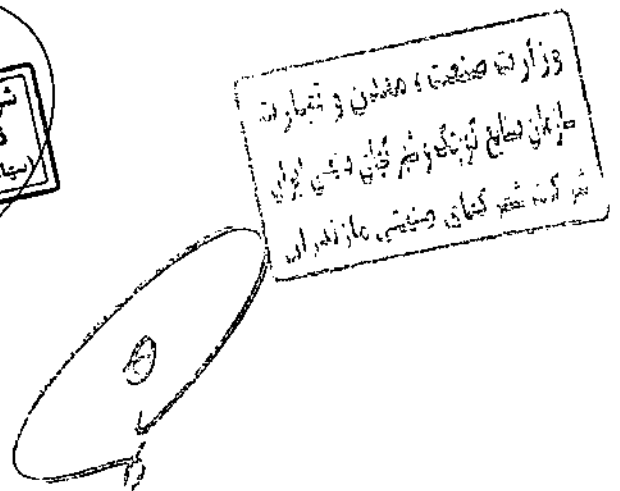 وزارت صنعت، معدن و تجارت
سازمان صنایع کوچک و شهرکهای صنعتی ایران
شرکت شهرکهای صنعتی مازندران